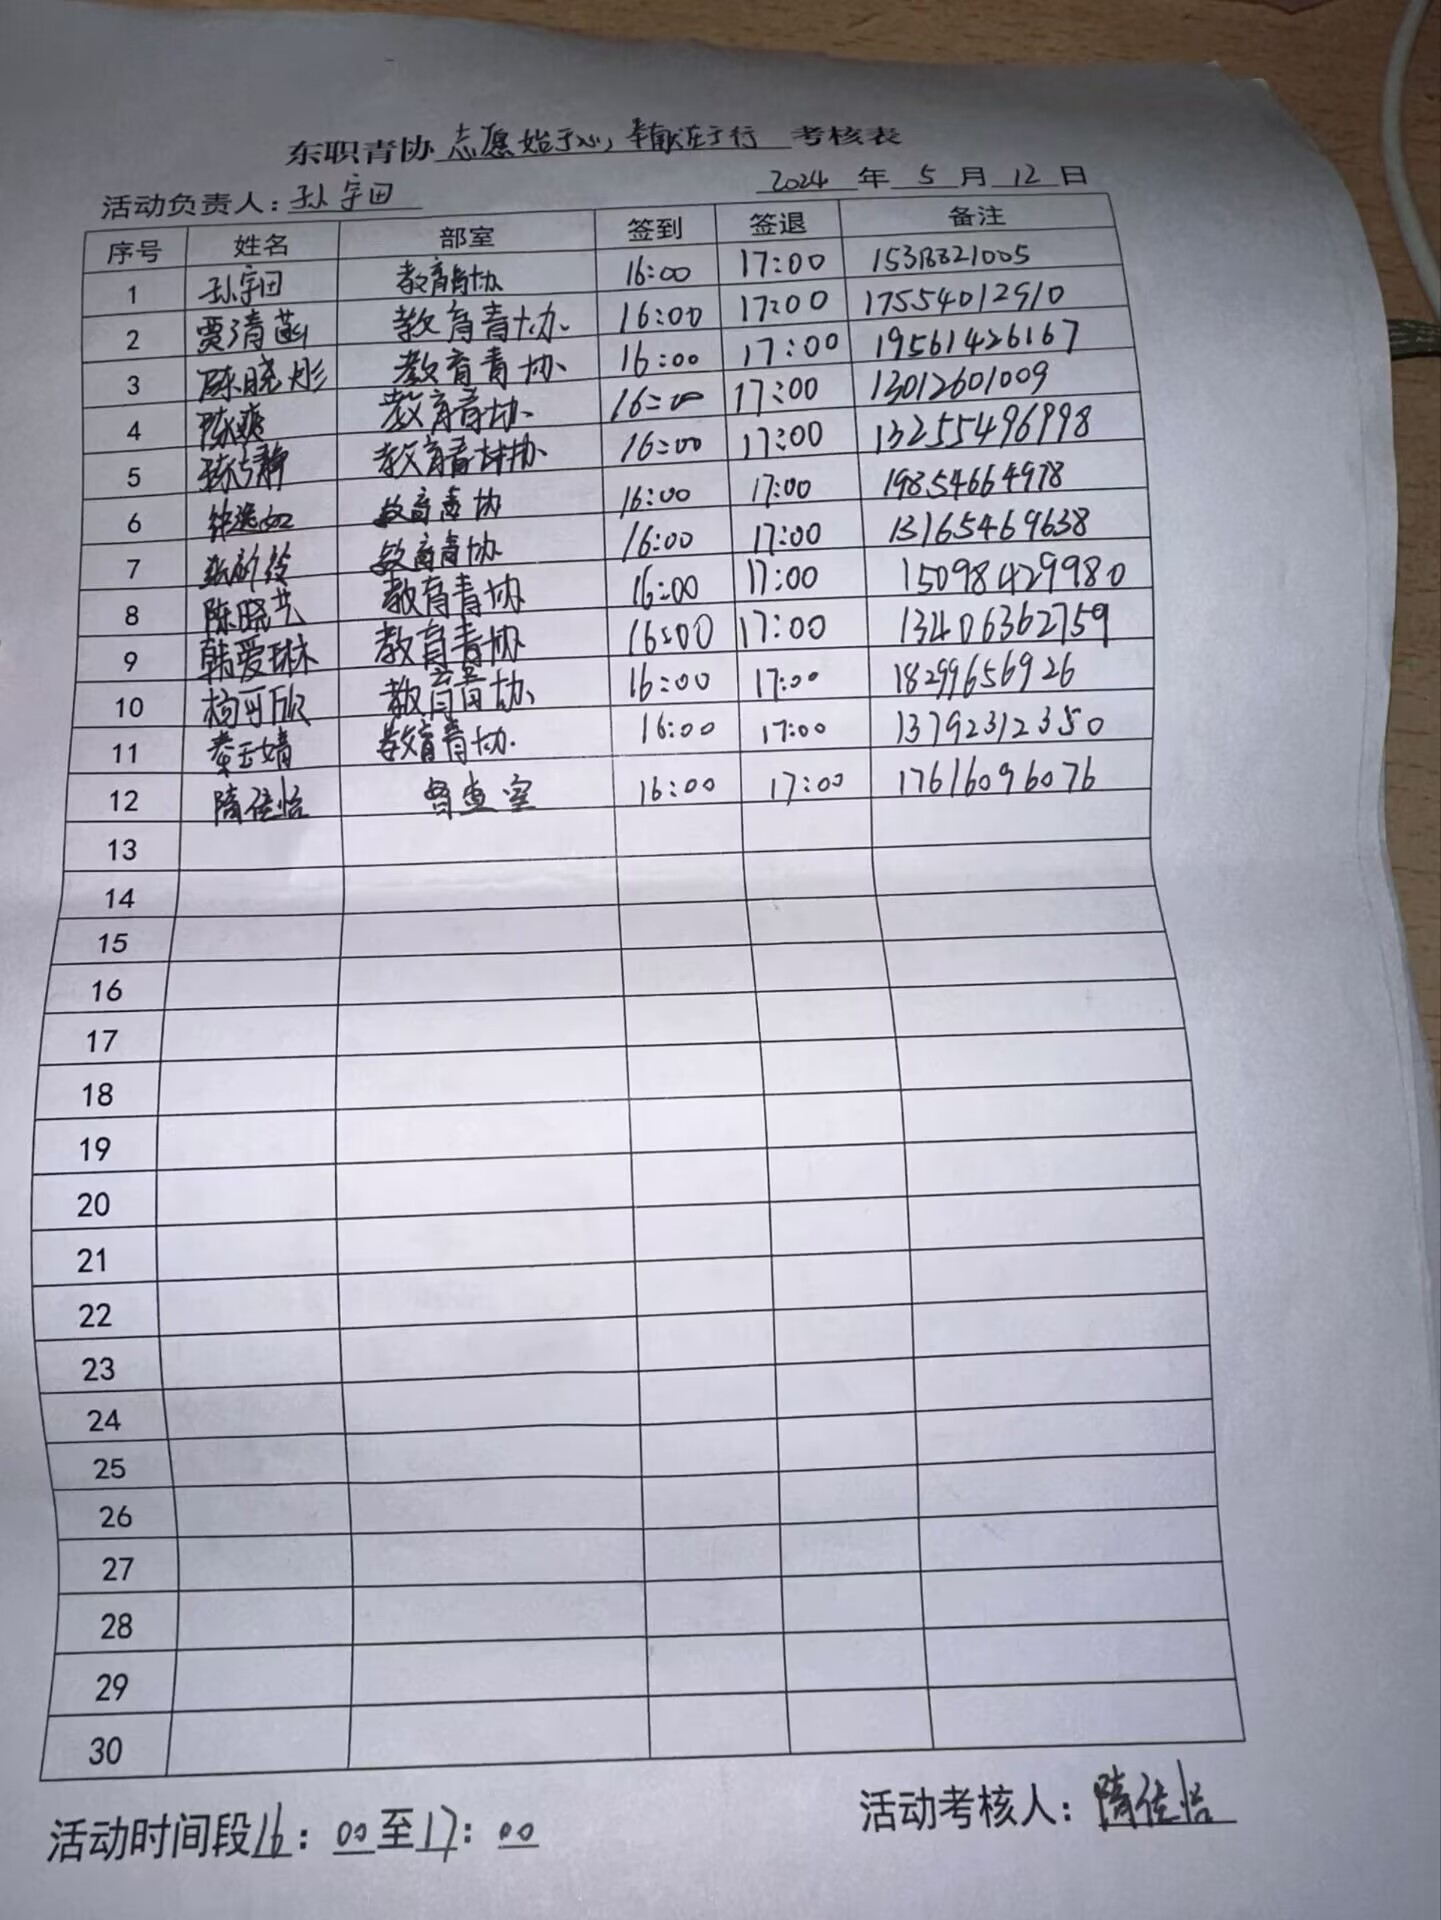 东职青协 志愿始于心，奉献在于行 考核表
活动负责人：孙宇田 2024 年 5 月 12 日
序号 姓名 部室 签到 签退 备注
1 孙宇田 教育青协 16:00 17:00
2 贾清菡 教育青协 16:00 17:00 17554012910
3 陈晓彤 教育青协 16:00 17:00 19561426167
4 陈爽 教育青协 16:00 17:00 13012601009
5 教育青协 16:00 17:00 13255496998
6 教育青协 16:00 17:00 19854664978
7 教育青协 16:00 17:00 13165469638
8 陈晓艺 教育青协 16:00 17:00 15098429980
9 韩爱琳 教育青协 16:00 17:00 13406362759
10 杨可欣 教育青协 16:00 17:00 18299656926
11 秦玉婧 教育青协 16:00 17:00 13792312350
12 隋佳怡 督查室 16:00 17:00 17616096076
13
14
15
16
17
18
19
20
21
22
23
24
25
26
27
28
29
30
活动时间段16：00至17：00 活动考核人：隋佳怡